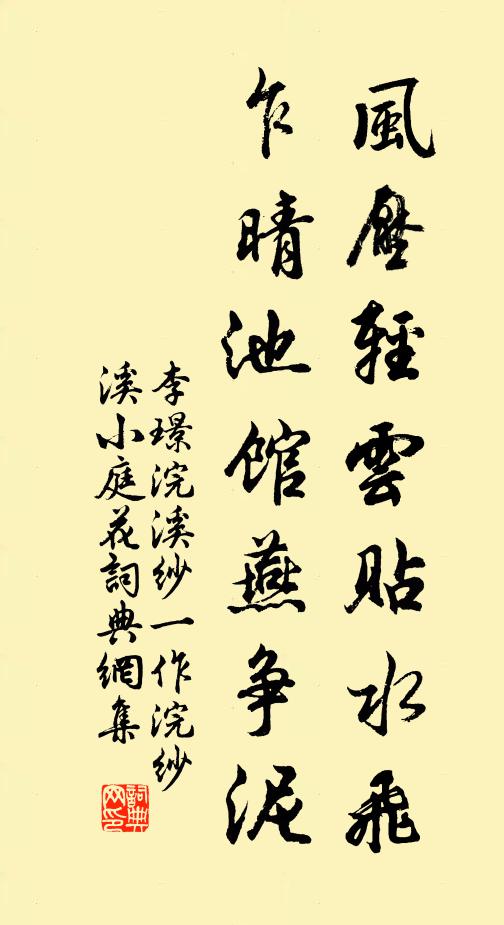 風壓輕雲貼水飛
乍晴池馆燕争泥
李璟浣溪紗一作浣紗
溪小庭花詞典網集
詞典
网印